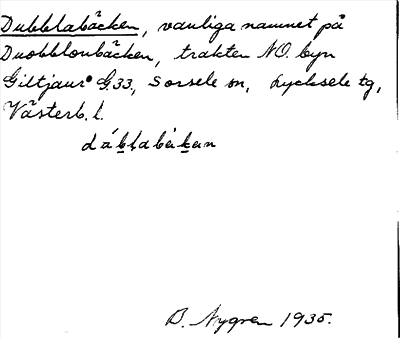 Dubblabäcken, vanliga namnet på
Duobblonbäcken, trakten NO. byn
Giltjaur G.33, Sorsele sn, Lycksele tg,
Västerb. l.
B. Nygren 1935.